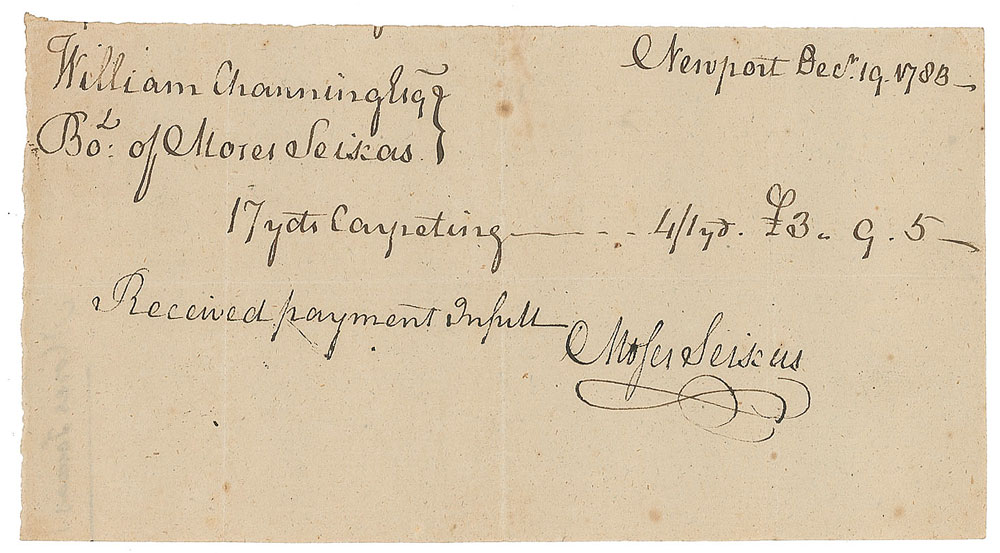 Newport Decr. 19. 1783
William Channing Esqr
Bot. of Moses Seixas
17 yds Carpeting 4/1 yd. £3. 9. 5
Received payment In full
Moses Seixas